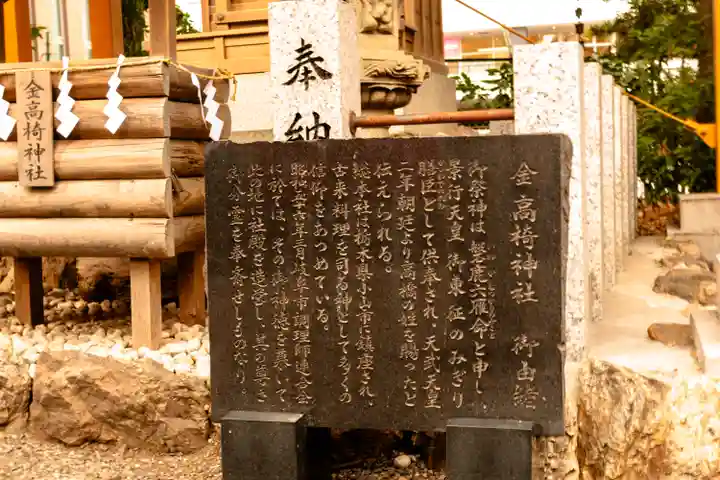 金高椅神社　御由緒
御祭神は、磐鹿六雁命と申し
景行天皇　御東征のみぎり
膳臣として供奉され、天武天皇
二年朝廷より高橋の姓を賜ったと
伝えられる。
総本社は栃木県小山市に鎮座され、
古来料理を司る神として多くの
信仰をあつめている。
昭和五十六年三月岐阜市調理師連合会
に於ては、その御神徳を慕いて、
此の地に社殿を造営し、其の尊き
御分霊を奉斎せしものなり。
奉納
金高椅神社